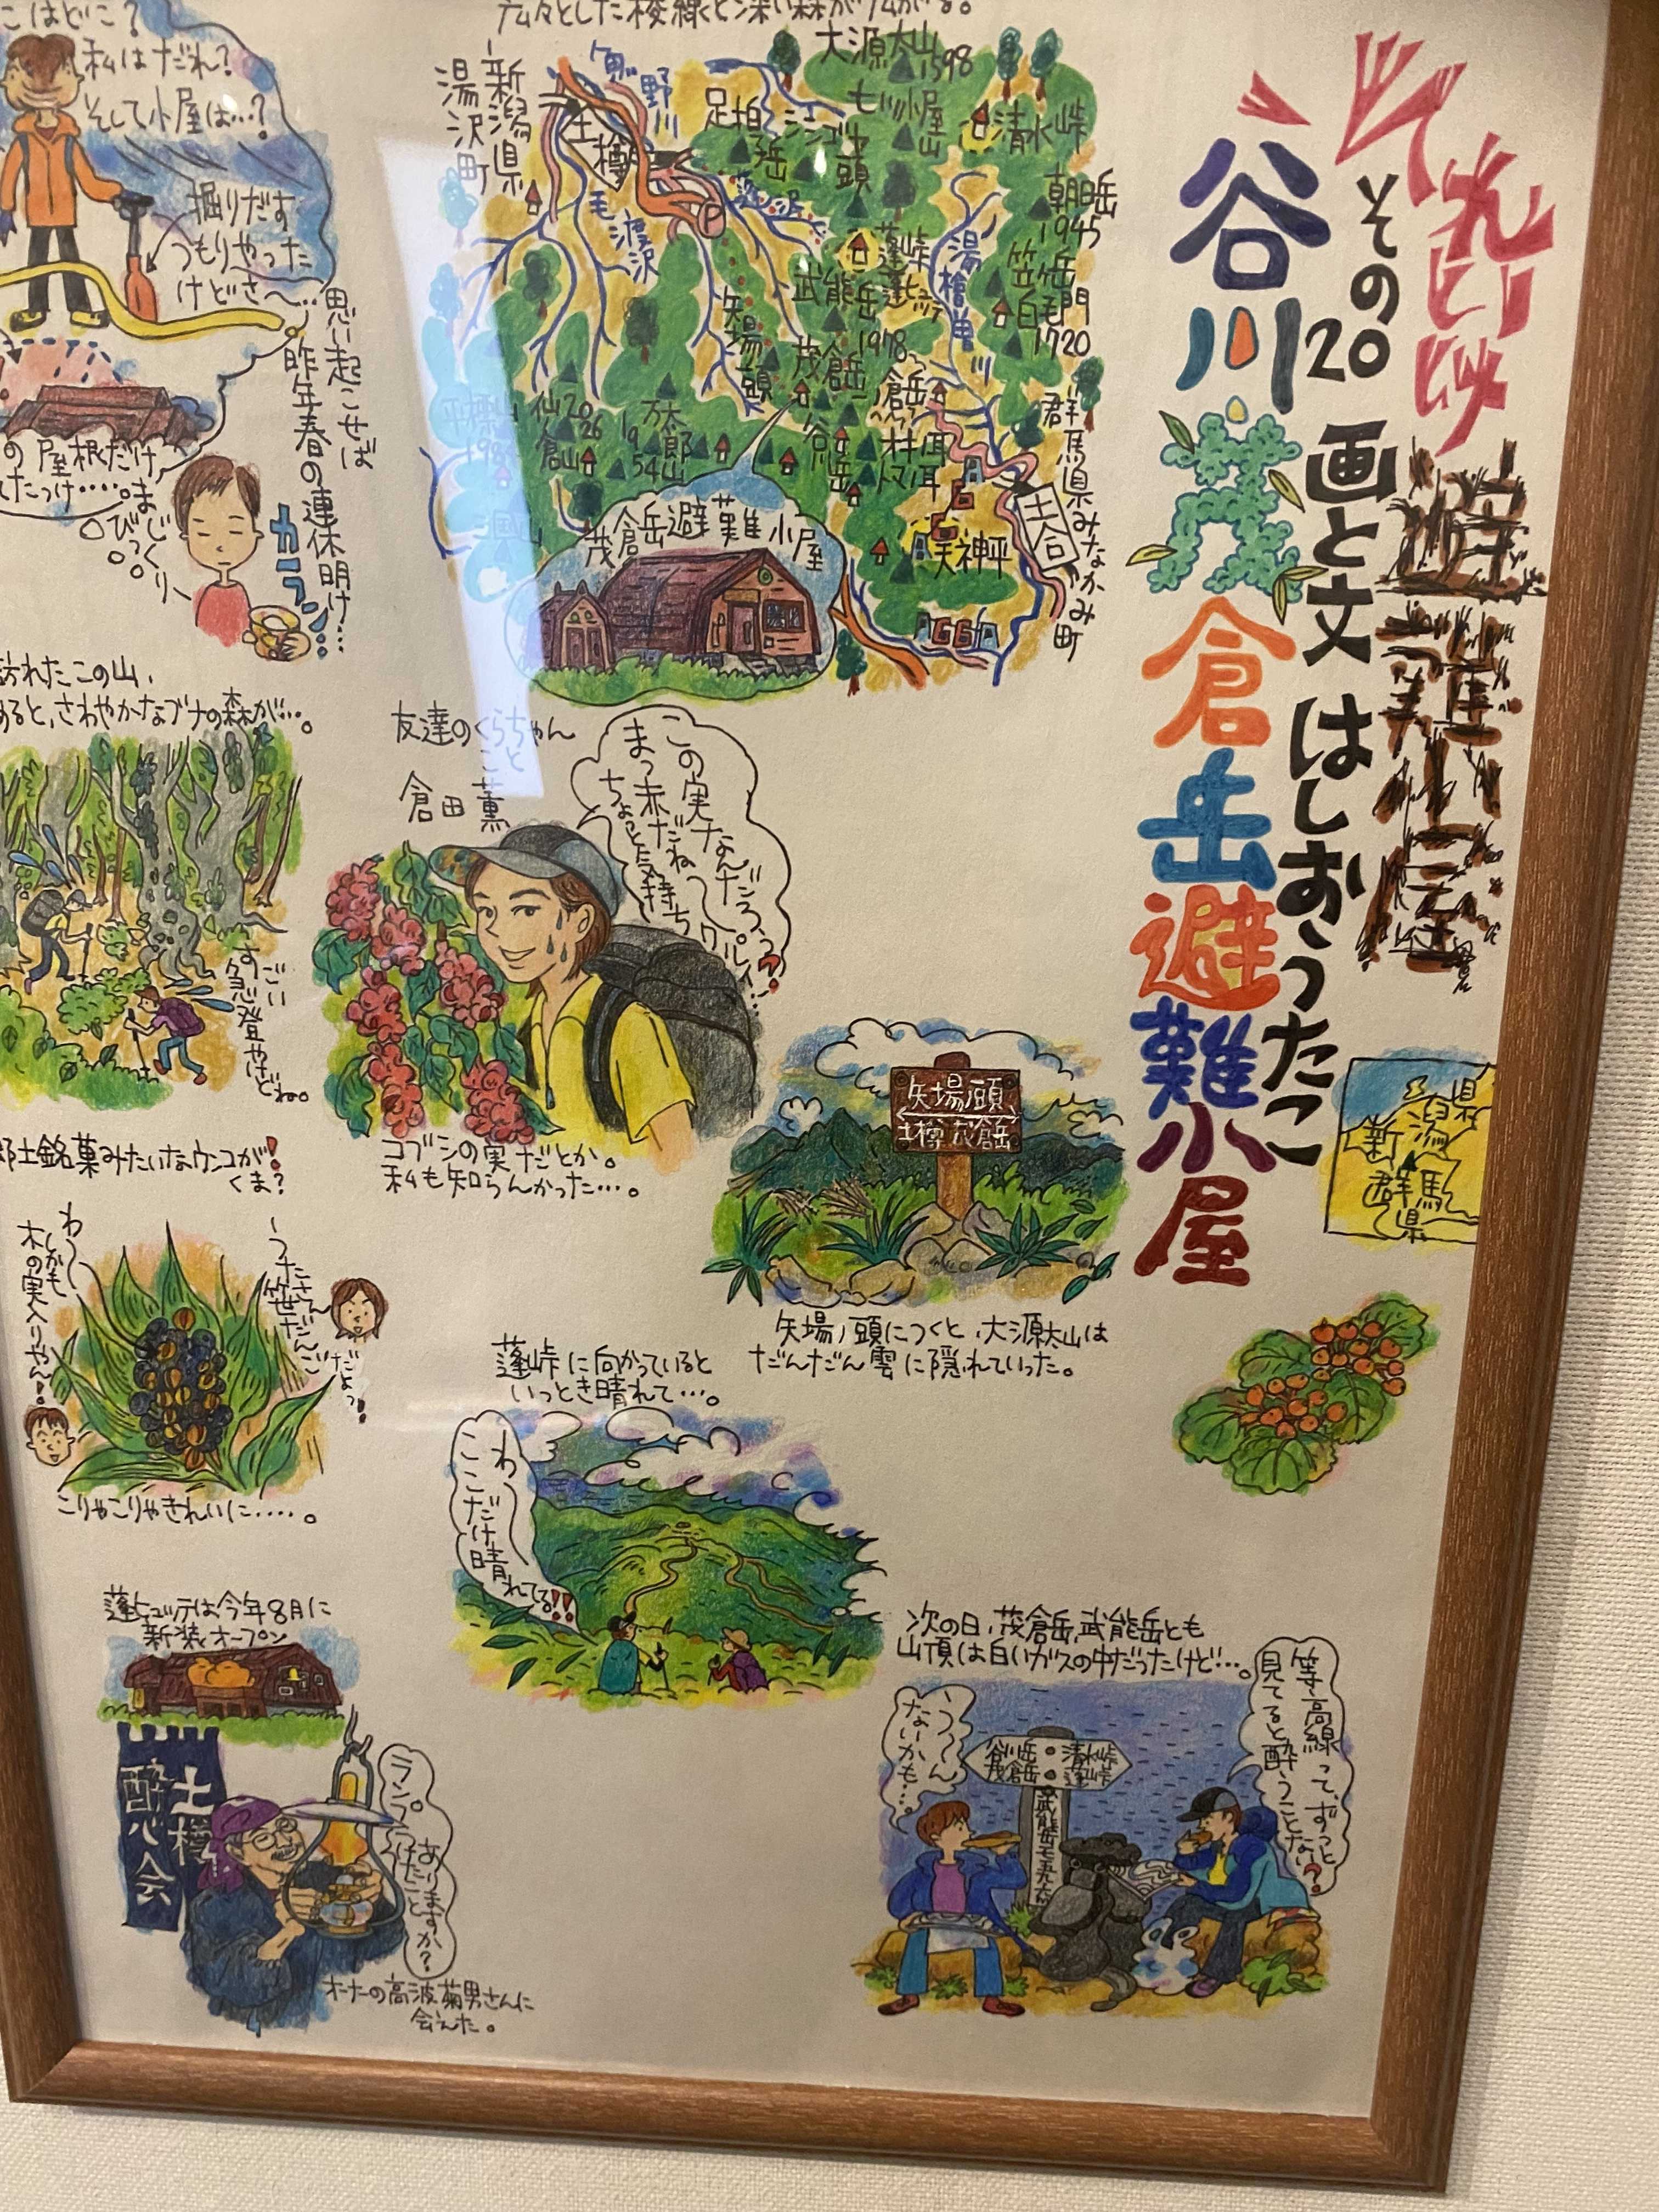 それいけ避難小屋
その20 画と文 はしおうたこ
谷川 茂倉岳避難小屋
新潟県
群馬県
広々とした稜線と深い森が広がる。
大源太山
1598
七ツ小屋山
清水峠
朝日岳
1945
笠ヶ岳
白毛門
1720
足拍子岳
シシゴヤ頭
魚野川
土樽
新潟県
湯沢町
毛渡沢
蓬沢
蓬峠
蓬ヒュッテ
武能岳
湯檜曽川
矢場ノ頭
茂倉岳
1978
一ノ倉岳
谷川岳
トマノ耳
万太郎山
1954
仙ノ倉山
2026
平標山
群馬県みなかみ町
土合
天神平
茂倉岳避難小屋
こはどこ?
私はだれ?
そして小屋は…?
掘りだす
つもりやった
けどさ〜…
思い起こせば
昨年春の連休明け…
の屋根だけ
てたっけ……。
まじ
びっくり
カラン…
訪れたこの山、
めると、さわやかなブナの森が…。
すごい
急登やけどね。
友達のくらちゃん
こと
倉田 薫
この実なんだろ〜?
まっ赤だね
ちょっと気持ちワルイ…
コブシの実だとか。
私も知らんかった…。
矢場ノ頭
土樽 茂倉岳
矢場ノ頭につくと、大源太山は
だんだん雲に隠れていった。
郷土銘菓みたいなウンコが!
くま?
うたさ〜ん
笹だんご
だよっ!
わ〜
しかも
木の実入りやん!
こりゃこりゃきれいに……。
蓬峠に向かっていると
いっとき晴れて…。
わ〜
ここだけ晴れてる!!
次の日、茂倉岳、武能岳とも
山頂は白いガスの中だったけど…。
等高線って、ずっと
見てると酔うことない?
う〜ん
ないかも…。
谷川岳
茂倉岳
清水峠
蓬峠
武能岳
蓬ヒュッテは今年8月に
新装オープン
土樽
酔心会
ランプ
あけたこと
ありますか?
オーナーの高波菊男さんに
会えた。